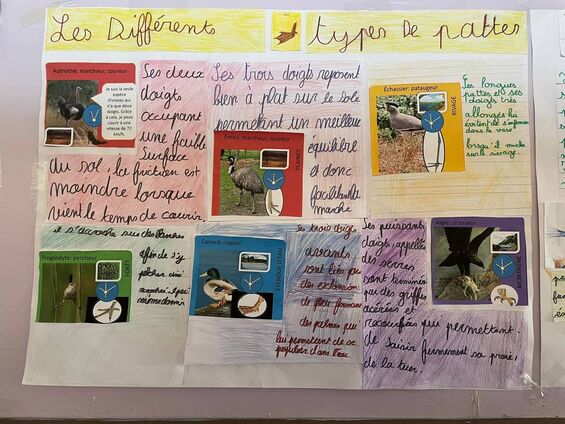 Les Différents types de pattes
Autruche: marcheur, coureur
Je suis la seule
espèce d'oiseau qui
n'a que deux
doigts. Grâce
à cela, je peux
courir à une
vitesse de 72
km/h.
Ses deux
doigts
occupant
une feuible
surface
du sol, la friction est
moindre lorsque
vient le temps de courir.
Ses trois doigts reposent
bien à plat sur le sole
permetant un meilleur
équilibre
et donc
facilitant la
marche
Emeu: marcheur, coureur
PLAINES
Échassier: pataugeur
RIVAGE
Les longues
pattes et ses
doigts très
allongés lui
évitent de s'enfoncer
dans la vase
lorsqu'il marche
sur le rivage.
il s'accroche sur des branches
Troglodyte: percheur
FORÊT
afin de s'y
pêcher
même dormir
Canard: nageur
ÉTANG
Les trois doigts
avants
sont liés par
des extension
de peau formant
des palmes qui
lui permettent de se
propulser dans l'eau
Ses puissants
doigts appellés
des serres
sont terminés
par des griffes
acérées et
recourbées qui permettent
de saisir fermement sa proie,
de la tuer.
Aigle: chasseur
MONTAGNE